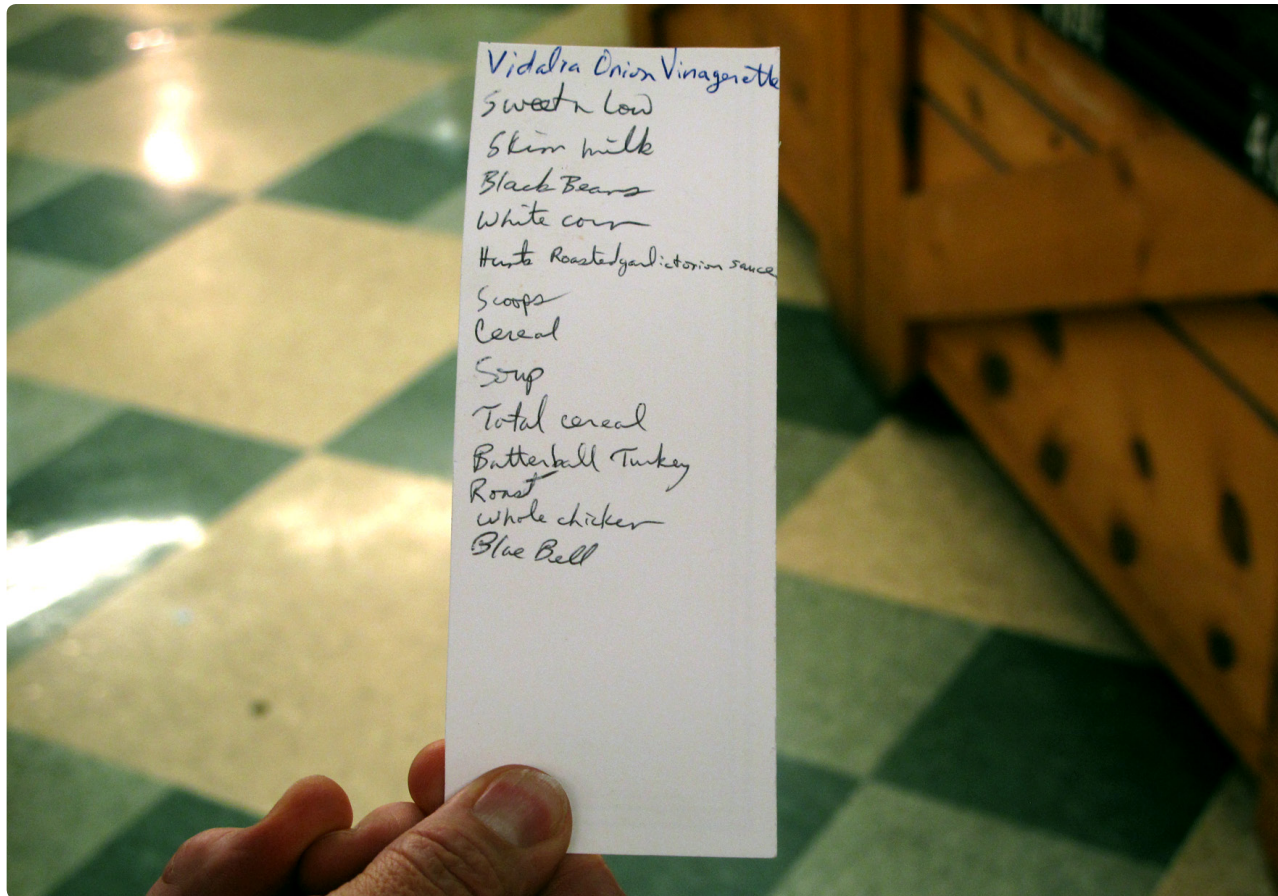 Vidalia Onion Vinagerette
Sweet n Low
Skim milk
Black Beans
White corn
Hunts Roasted garlic &onion sauce
Scoops
Cereal
Soup
Total cereal
Butterball Turkey
Roast
whole chicken
Blue Bell